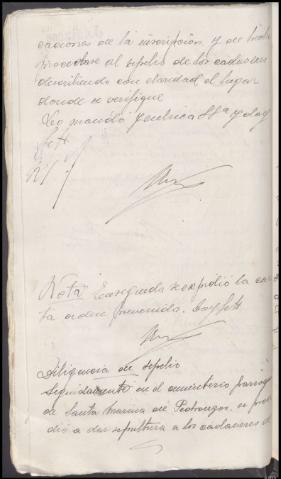 caciones de la inscripción y se
procedase al sepelio de los cadaveres
describiendo con claridad el lugar
donde se verifique
Lo mandó y rubrica S.Sª y doy
fe
Nota Enseguida se expidio la
ta orden prevenida. Doy fe
Diligencia de sepelio
Seguidamente en el cementerio parroq
de Santa Marina de Pedranzos, se proce
dió a dar sepultura a los cadaveres d